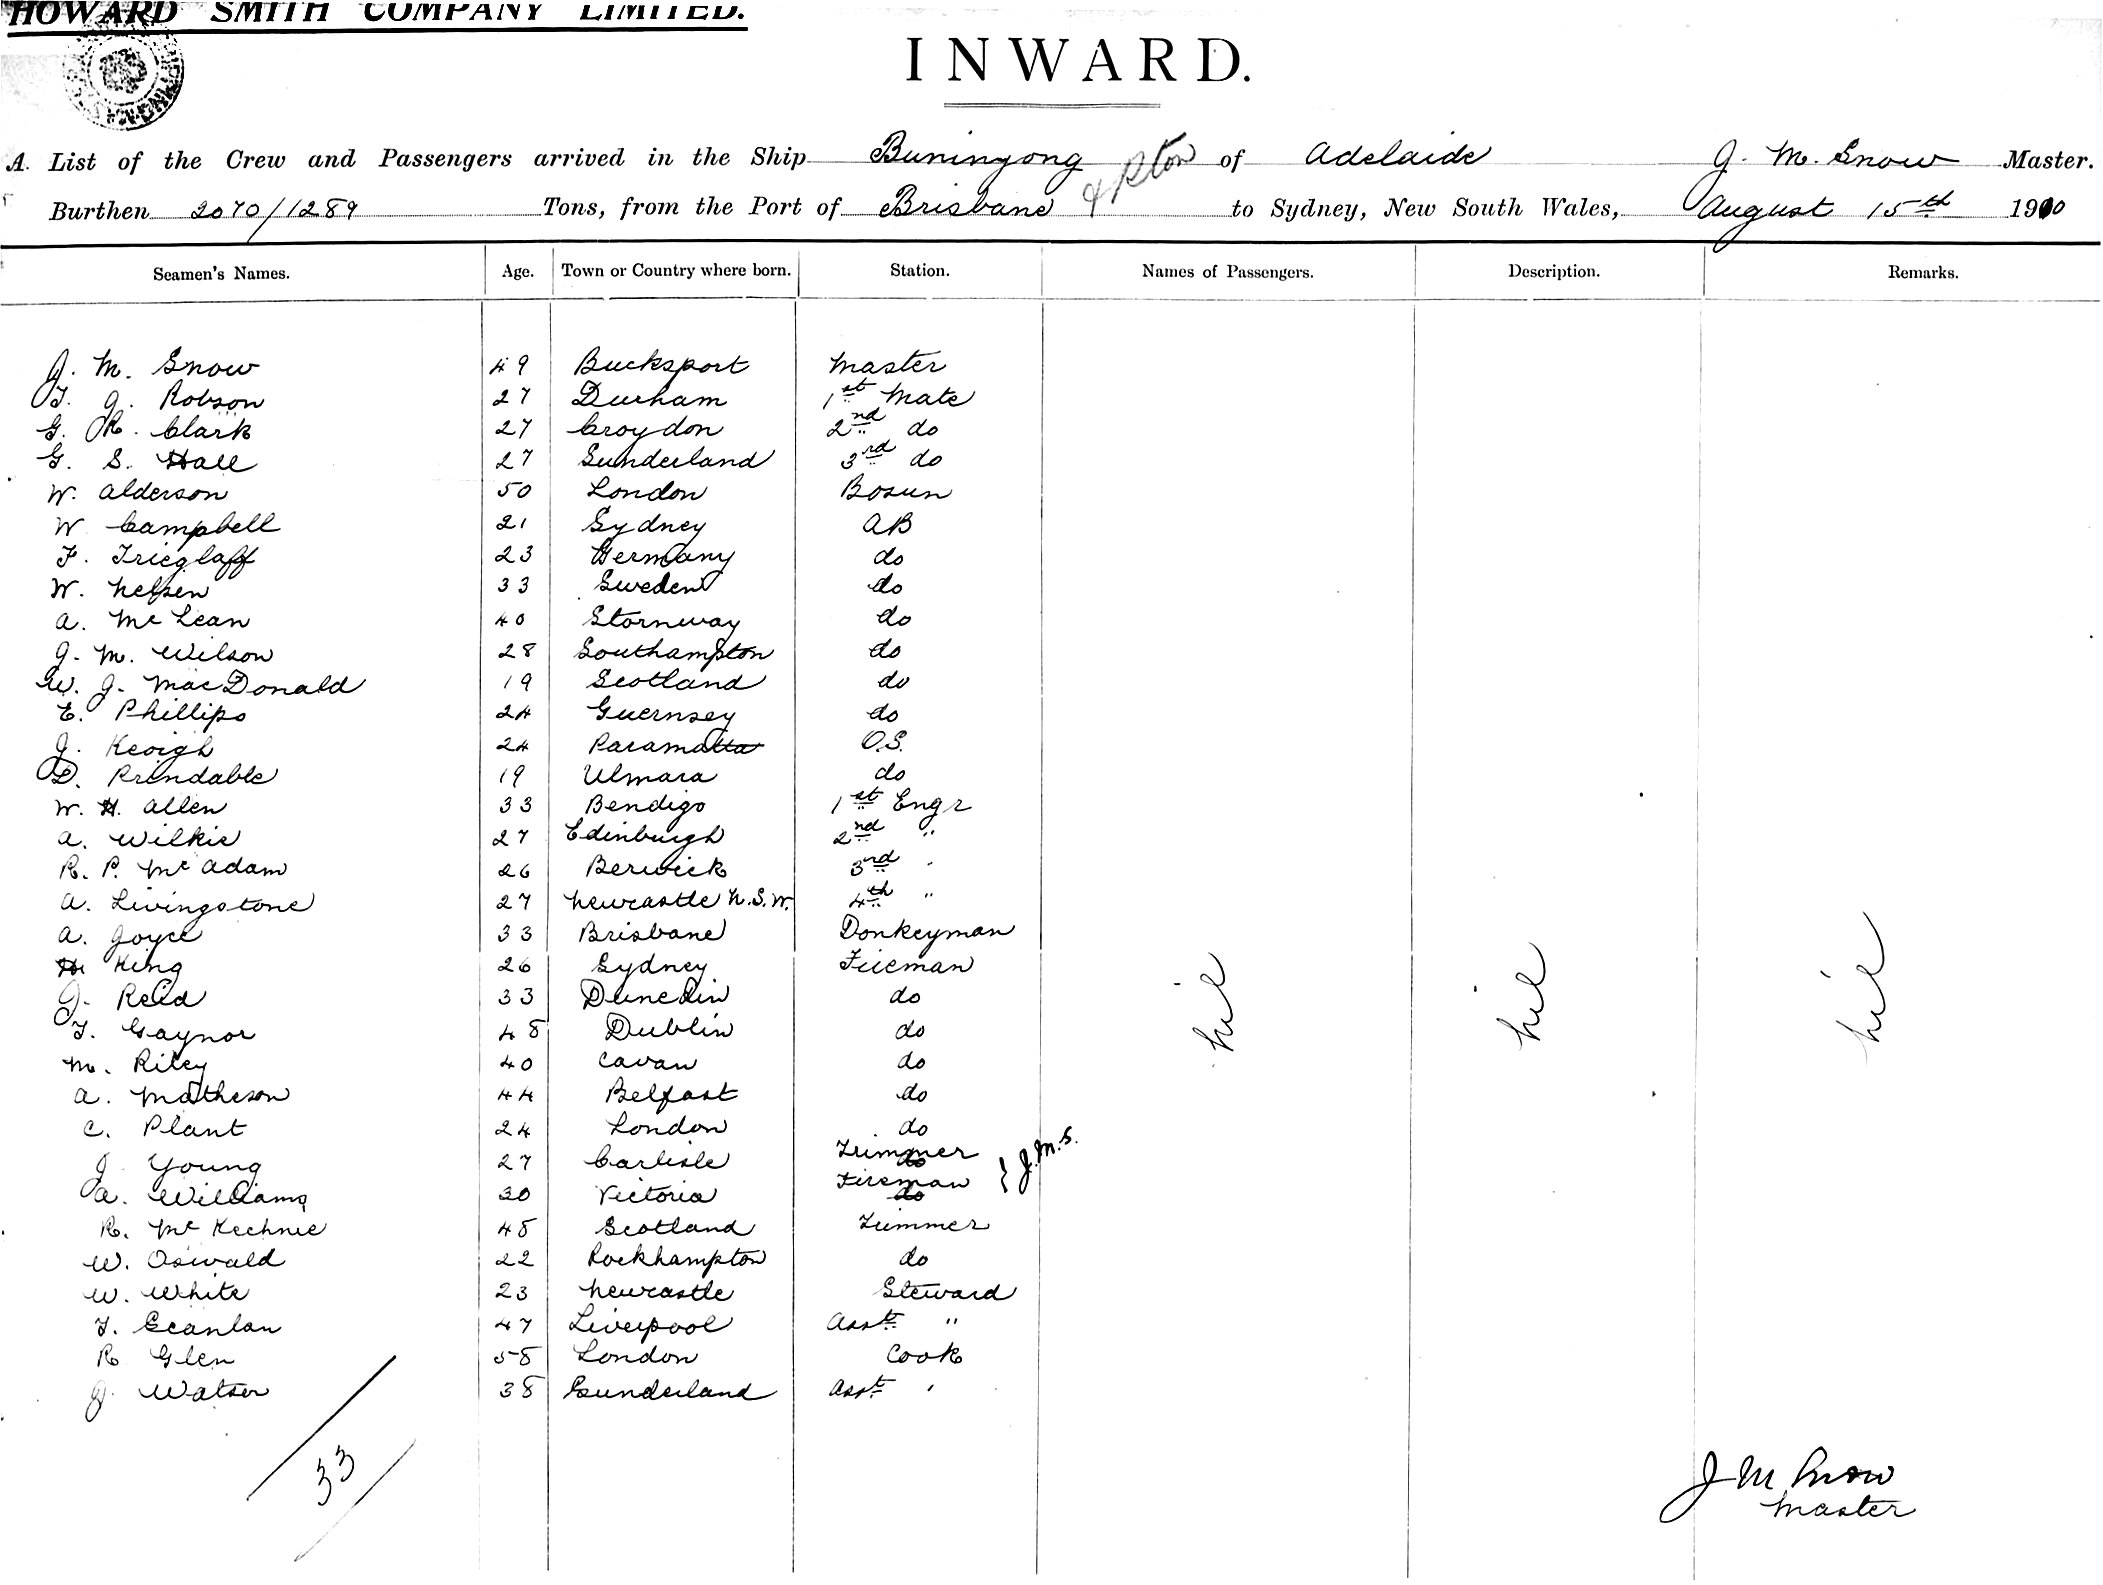 HOWARD SMITH COMPANY LIMITED.
INWARD.
A List of the Crew and Passengers arrived in the Ship Buninyong of Adelaide J. M. Snow Master.
& Rton
Burthen 2070/1289 Tons, from the Port of Brisbane to Sydney, New South Wales, August 15th 1910
Seamen's Names. Age. Town or Country where born. Station. Names of Passengers. Description. Remarks.
J. M. Snow 49 Bucksport Master
T. J. Robson 27 Durham 1st Mate
G. R. Clark 27 Croydon 2nd do
G. S. Hall 27 Sunderland 3rd do
W. Alderson 50 London Bosun
W Campbell 21 Sydney AB
F. Trieglaff 23 Germany do
W. Nelsen 33 Sweden do
A. McLean 40 Stornway do
J. M. Wilson 28 Southampton do
W. J. MacDonald 19 Scotland do
E. Phillips 24 Guernsey do
J. Keoigh 24 Paramatta O.S.
D. Prendable 19 Ulmara do
W. H. Allen 33 Bendigo 1st Engr
A. Wilkie 27 Edinburgh 2nd "
R. P. McAdam 26 Berwick 3rd "
A. Livingstone 27 Newcastle N.S.W. 4th "
A. Joyce 33 Brisbane Donkeyman
H King 26 Sydney Fireman
J. Reid 33 Dunedin do
T. Gaynor 48 Dublin do
M. Riley 40 Cavan do
A. Matheson 44 Belfast do
C. Plant 24 London do
J Young 27 Carlisle Trimmer do
A. Williams 30 Victoria Fireman do
} J.M.S.
R. McKechnie 48 Scotland Trimmer
W. Oswald 22 Rockhampton do
W. White 23 Newcastle Steward
T. Scanlan 47 Liverpool Asst "
R Glen 58 London Cook
J. Watson 38 Sunderland Asst "
nil nil nil
33
J M Snow
Master